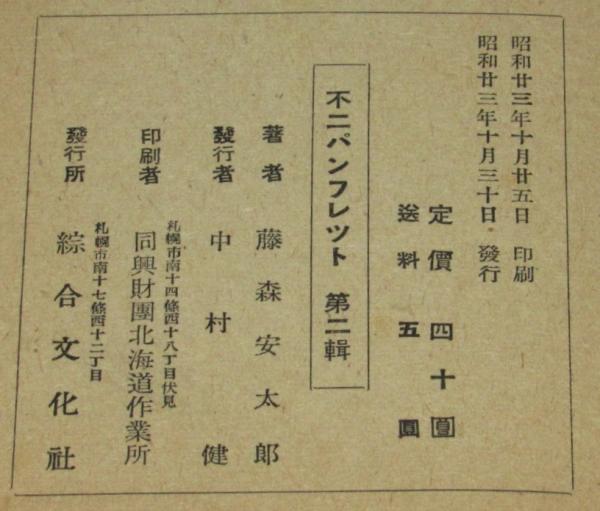 昭和廿三年十月廿五日 印刷
昭和廿三年十月三十日 發行
定價 四十圓
送料 五圓
不二パンフレツト 第二輯
著者 藤森安太郎
發行者 中村健
札幌市南十四條西十八丁目伏見
印刷者 同興財團北海道作業所
札幌市南十七條西十二丁目
發行所 綜合文化社